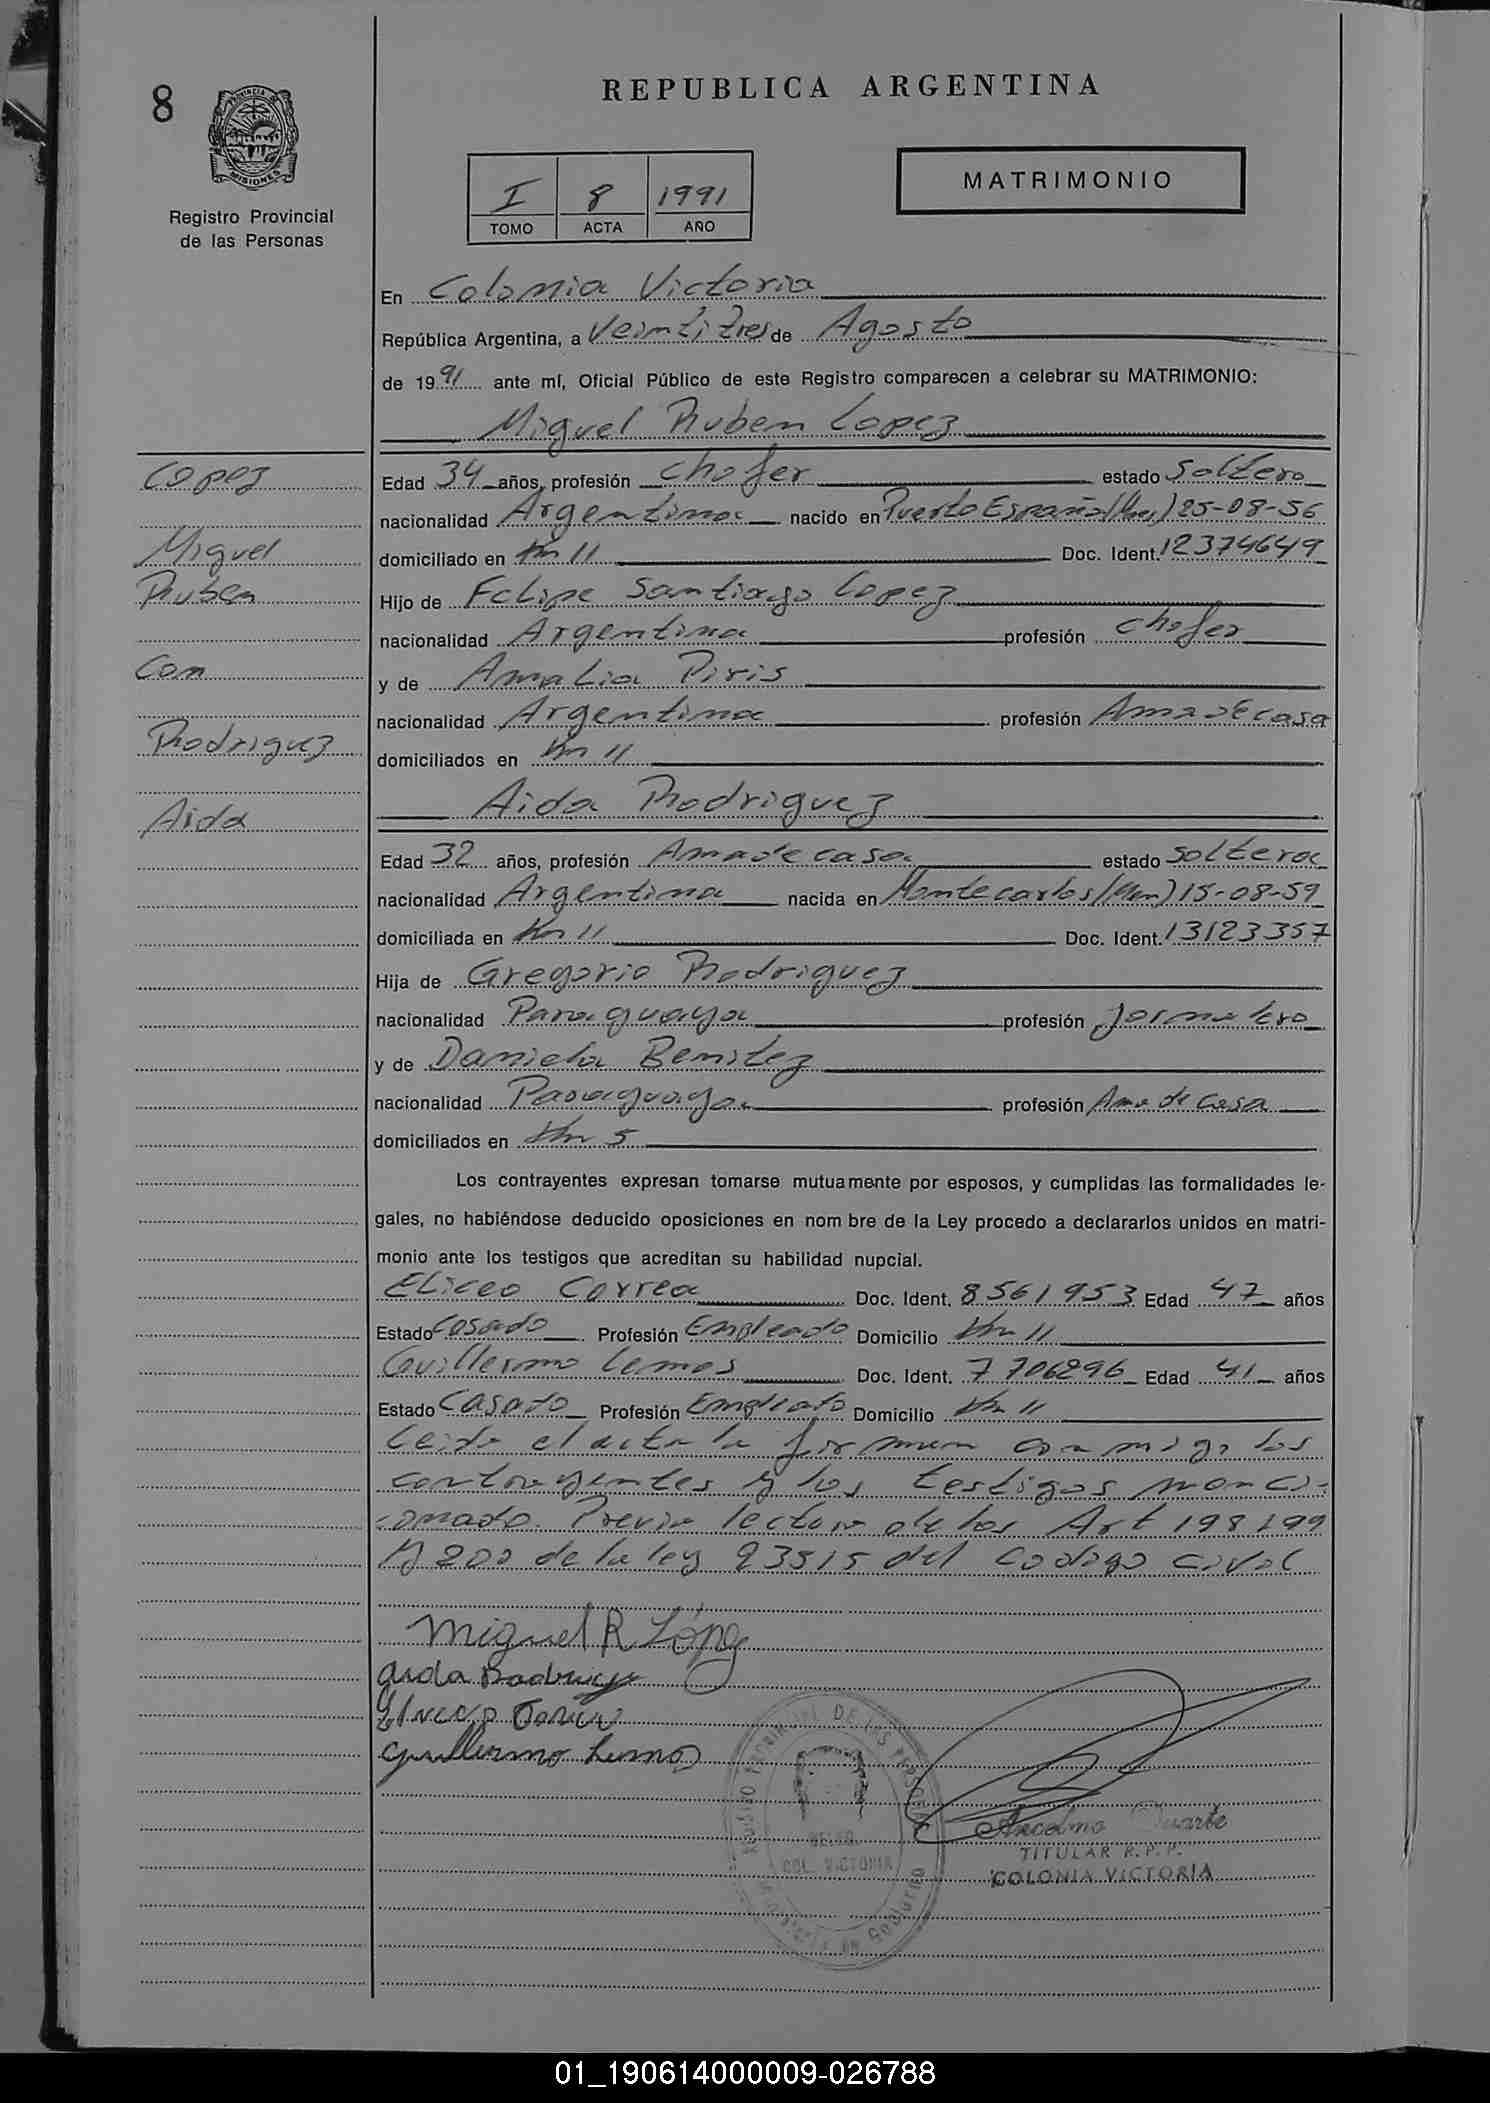 8
PROVINCIA DE
MISIONES
Registro Provincial
de las Personas
REPUBLICA ARGENTINA
I 8 1991
TOMO ACTA AÑO
MATRIMONIO
En Colonia Victoria
República Argentina, a Veintitres de Agosto
de 1991 ante mí, Oficial Público de este Registro comparecen a celebrar su MATRIMONIO:
Miguel Ruben Lopez
Lopez
Miguel
Ruben
Con
Rodriguez
Aida
Edad 34 años, profesión chofer estado Soltero
nacionalidad Argentina nacido en Puerto España (Mnes) 25-08-56
domiciliado en Km 11 Doc. Ident. 12374649
Hijo de Felipe Santiago Lopez
nacionalidad Argentina profesión chofer
y de Amalia Piris
nacionalidad Argentina profesión Ama de casa
domiciliados en Km 11
Aida Rodriguez
Edad 32 años, profesión Ama de casa estado Soltera
nacionalidad Argentina nacida en Montecarlos (Mnes) 15-08-59
domiciliada en Km 11 Doc. Ident. 13123357
Hija de Gregorio Rodriguez
nacionalidad Paraguaya profesión Jornalero
y de Daniela Benitez
nacionalidad Paraguaya profesión Ama de casa
domiciliados en Km 5
Los contrayentes expresan tomarse mutuamente por esposos, y cumplidas las formalidades le-
gales, no habiéndose deducido oposiciones en nom bre de la Ley procedo a declararlos unidos en matri-
monio ante los testigos que acreditan su habilidad nupcial.
Eliceo Correa Doc. Ident. 8561953 Edad 47 años
Estado Casado Profesión Empleado Domicilio Km 11
Guillermo Lemos Doc. Ident. 7706296 Edad 41 años
Estado Casado Profesión Empleado Domicilio Km 11
Leida el acta la firman conmigo los
contrayentes y los testigos menci-
onado. Previa lectura de los Art 198 199
y 200 de la ley 23515 del Codigo Civil
Miguel R López
Aida Rodriguez
Guillermo Lemos
DE LAS PERSONAS
COL. VICTORIA
Anselmo Duarte
TITULAR R. P. P.
COLONIA VICTORIA
01_190614000009-026788